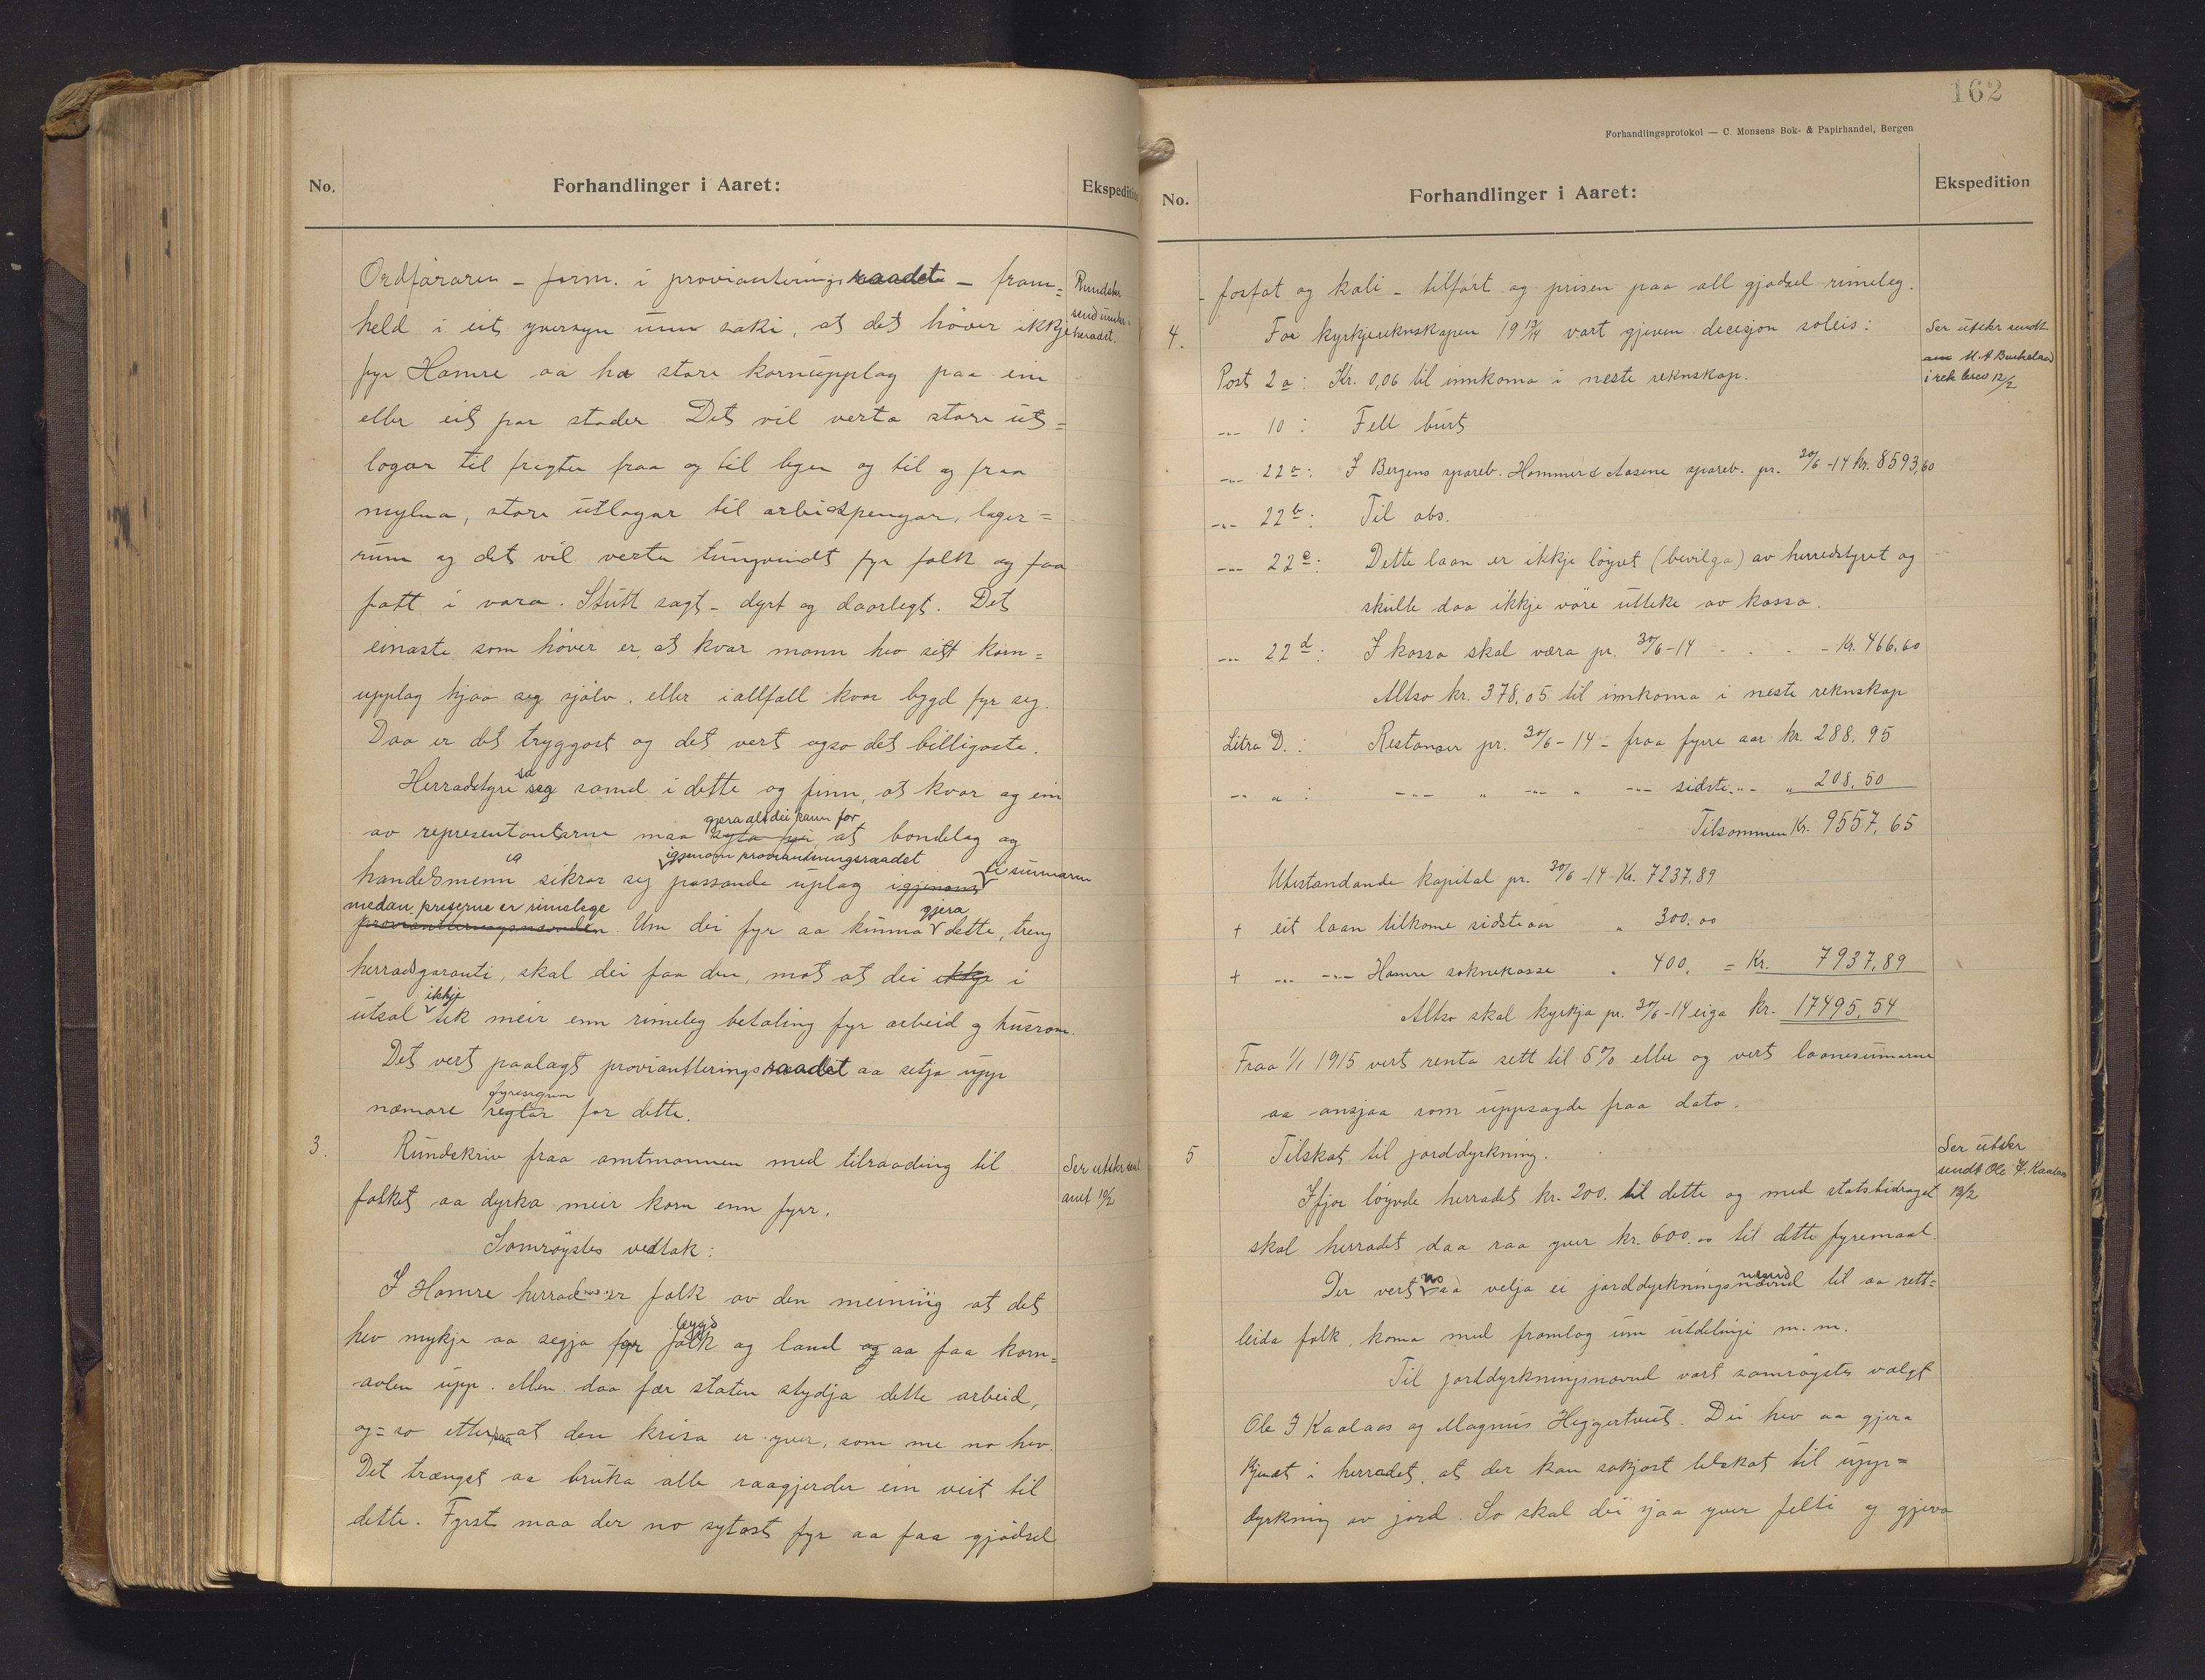 No.
Forhandlinger i Aaret:
Ekspedition
Ordføraren - form. i provianteringsraadet - fram=
held i eit yversyn um saki, at det høver ikkje
fyr Hamre aa ha store kornupplag paa ein
eller eit par stader. Det vil verta store ut=
logor til fragter fraa og til byen og til og fraa
mylna, store utlagar til arbeidspengar, lager=
rum og det vil verta tungvindt fyr folk og faa
fatt i vara. Stutt sagt - dyrt og daarlegt. Det
einaste som høver er, at kvar mann hev sitt korn=
upplag hjaa seg sjølv, eller iallfall kvar bygd fyr seg.
Daa er det tryggast og det vert ogso det billigaste.
Herradstyre sa seg samd i dette og finn, at kvar og ein
av representantarne maa gjera alt dei kann for at bondelag og
handelsmenn sikrar seg passande uplag igjenom provianteringsraadet ti summaren
medan priserne er rimelege
provianteringsnemnden. Um dei fyr aa kunna gjera dette, treng
herradsgaranti, skal dei faa den, mot at dei ikkje i
utsal ikkje tek meir enn rimeleg betaling fyr arbeid og husrom.
Det vert paalagt provianteringsraadet aa setja upp
næmare reglar for dette.
Rundskr
send
heradet.
3. Rundskriv fraa amtmannen med tilraading til
folket aa dyrka meir korn enn fyrr.
Ser utskr sendt
amt 10/2
Samrøystes vedtak:
I Hamre herrad er folk av den meining at det
hev mykje aa segja fyr bygd folk og land og aa faa korn=
avlen upp. Men daa fær staten stydja dette arbeid,
og=so etterpaa at den krisa er yver, som me no hev.
Det trængst aa bruka alle raagjerder ein veit til
dette. Fyrst maa der no sytast fyr aa faa gjødsel
162
Forhandlingsprotokol — C. Monsens Bok- & Papirhandel, Bergen
No.
Forhandlinger i Aaret:
Ekspedition
- fosfat og kali - tilført og prisen paa all gjødsel rimeleg.
4. For kyrkjereknskapen 19 13/14 vart gjeven decisjon soleis:
Ser utskr sendt
M A Burkeland
i rek brev 12/2
Post 2a: Kr. 0,06 til innkoma i neste reknskap.
-"- 10: Fell burt
-"- 22a: I Bergens spareb. Hammer & Aasene spareb. pr. 30/6 -14 kr. 8593,60
-"- 22b: Til obs.
-"- 22c: Dette laan er ikkje løyvt (bevilga) av herredstyret og
skulle daa ikkje vøre utteke av kassa.
-"- 22d: I kassa skal væra pr. 30/6 -14 - . . - Kr. 466.60
Altso kr. 378,05 til innkoma i neste reknskap
Litra D.: Restanser pr. 30/6 - 14 - fraa fyrre aar kr. 288,95
-" " : -"- " -"- " -"- sidste -"- " 208,50
Tilsammen Kr. 9557,65
Utestandande kapital pr. 30/6 -14 Kr. 7237,89
+ eit laan tilkome sidste aar " 300.00
+ -"- -"- Hamre soknekasse " 400. = Kr. 7937,89
Altso skal kyrkja pr. 30/6 -14 eiga kr. 17495,54
Fraa 1/1 1915 vert renta sett til 5% eller og vert laanesumarne
aa ansjaa som uppsagde fraa dato.
5 Tilskot til jorddyrkning.
Ser utskr
sendt Ole J. Kaalaas
12/2
Ifjor løyvde herradet kr. 200. til dette og med statsbidraget
skal herradet daa raa yver kr. 600.00 til dette fyremaal.
Der vert no aa velja ei jorddyrkningsnemnd til aa rett=
leida folk, koma med framlag um utdelingi m. m.
Til jorddyrkningsnevnd vart samrøystes valgt
Ole J Kaalaas og Magnus Heggertveit. Dei hev aa gjera
kjendt i herradet, at der kan søkjast tilskot til upp=
dyrkning av jord. So skal dei sjaa yver felti og gjeva